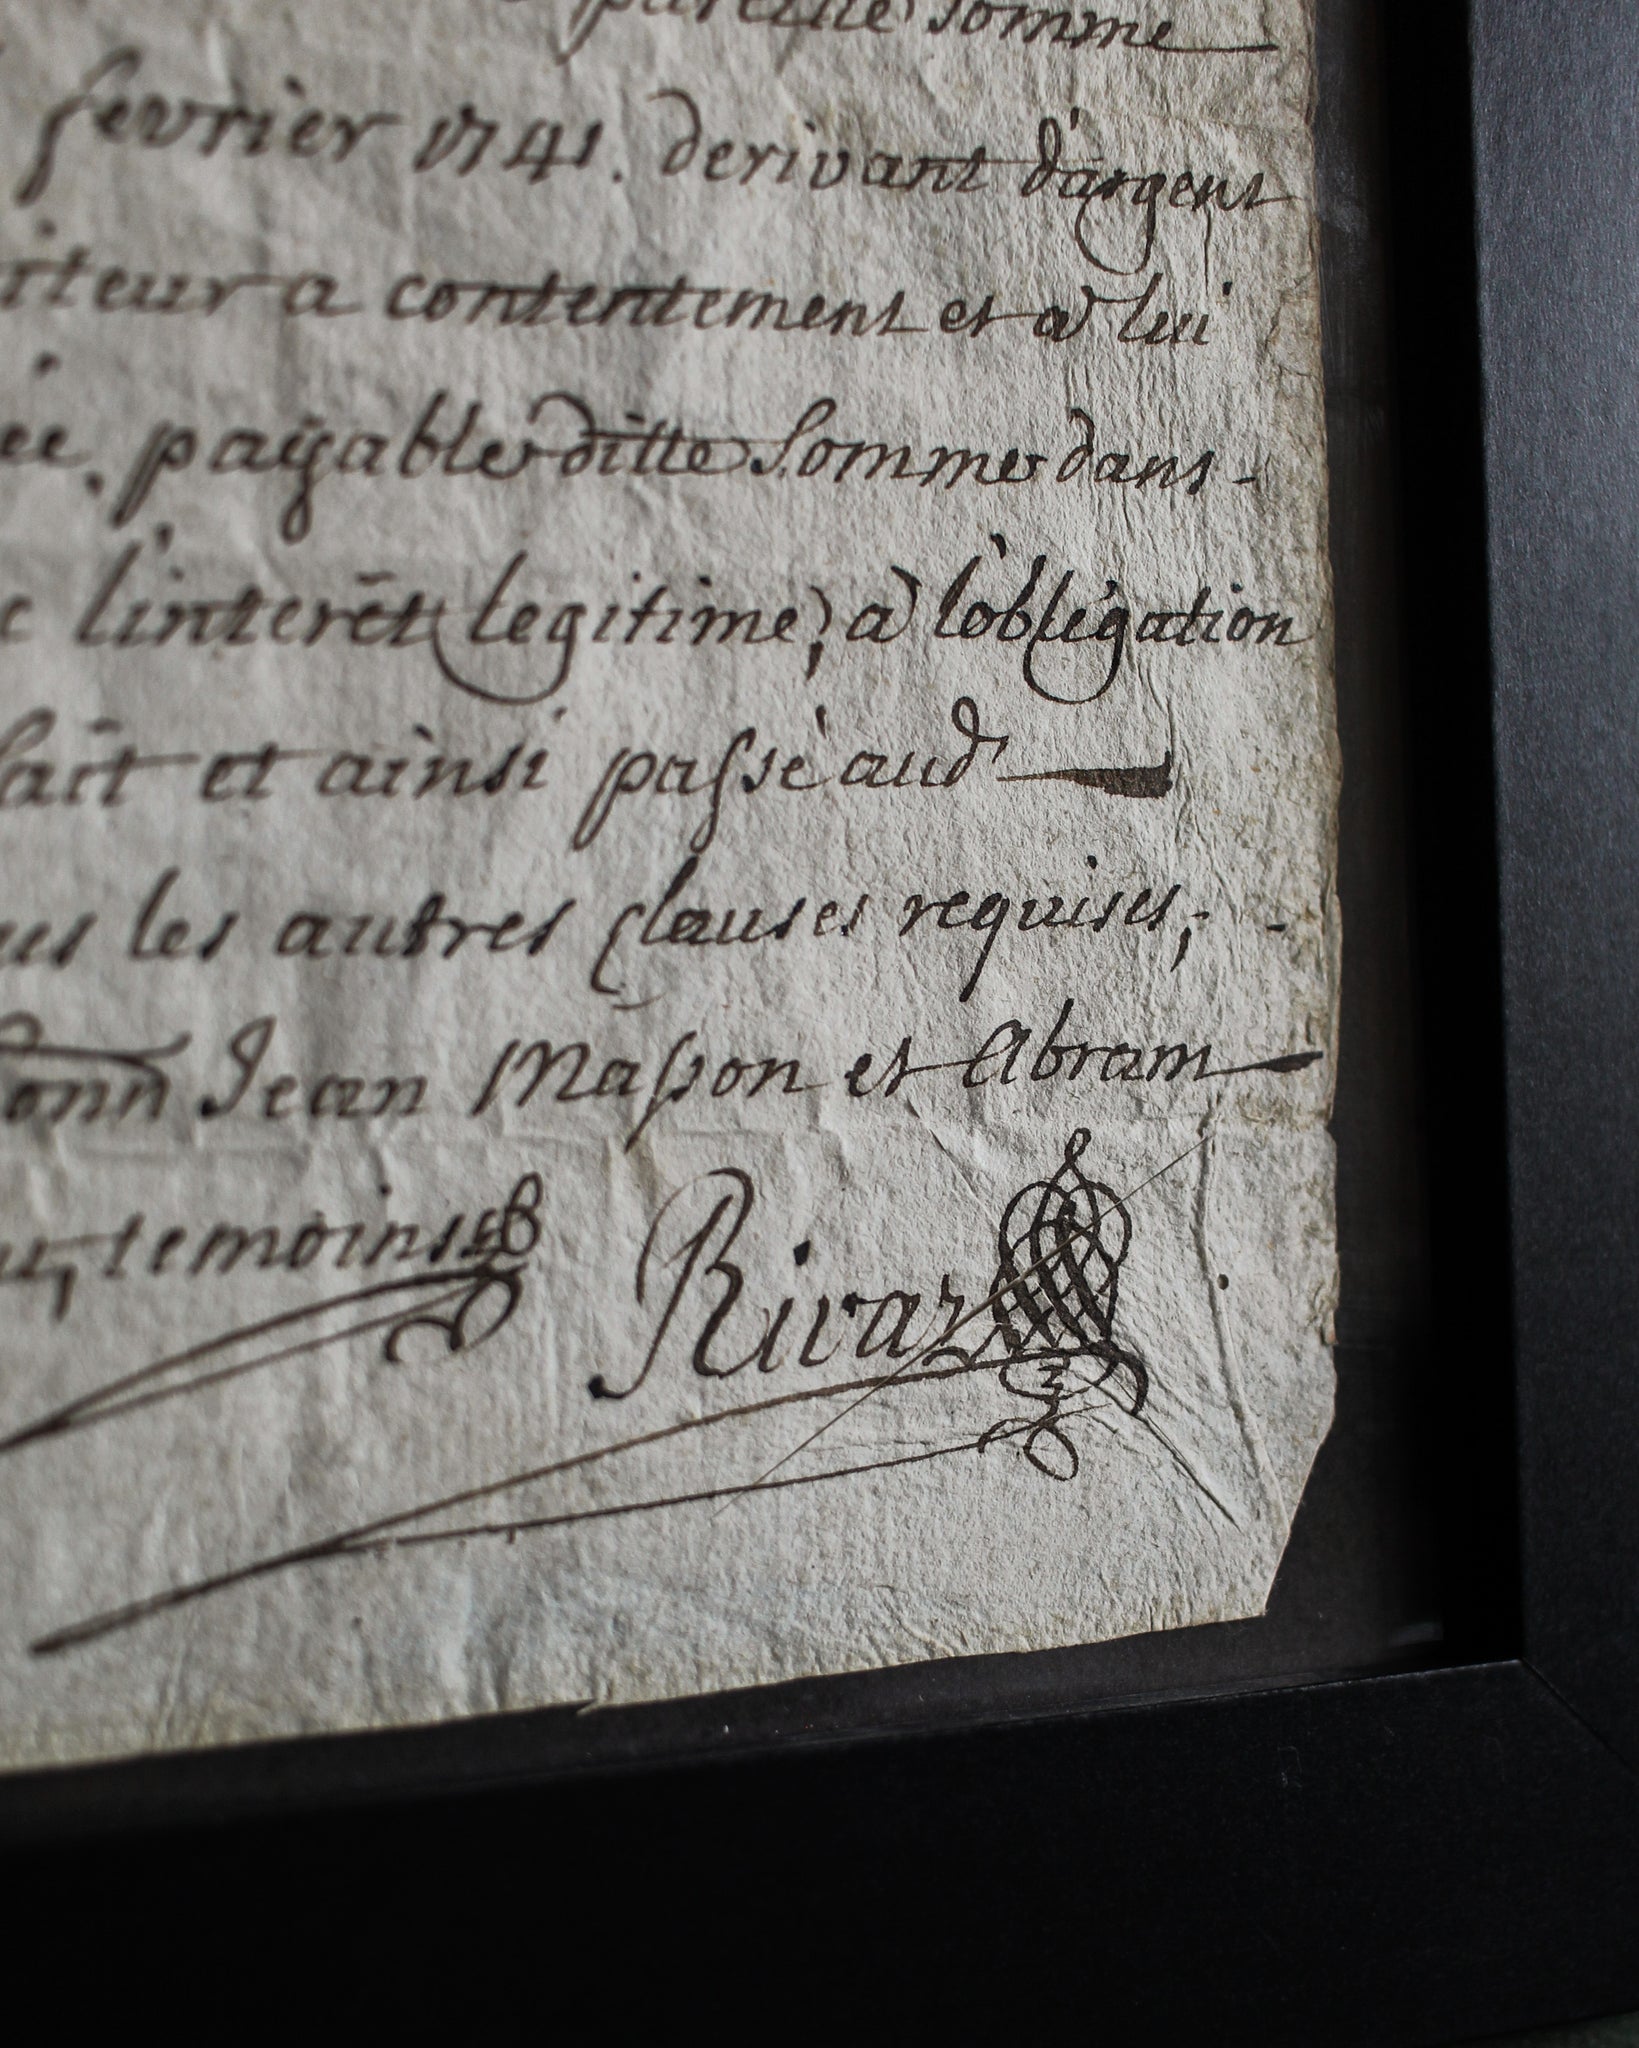 pareille somme
fevrier 1741. derivant d'argent
iteur a contentement et a lui
ée. payable ditte Somme dans-
c l'interêt legitime, a l'obligation
fait et ainsi passé aud
us les autres clauses requises;-
Jean Masson et Abram
temoins
Rivaz